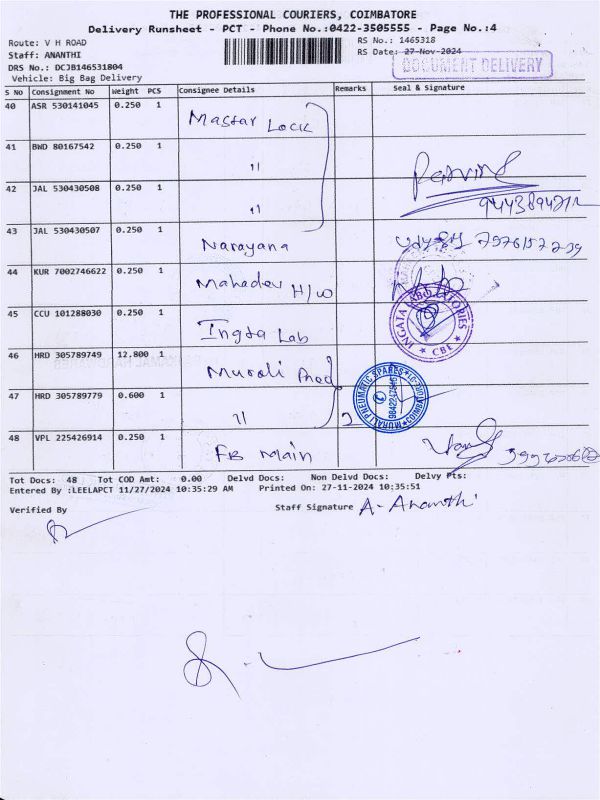 THE PROFESSIONAL COURIERS, COIMBATORE
Delivery Runsheet - PCT - Phone No.:0422-3505555 - Page No.:4
Route: V H ROAD
RS No.: 1465318
Staff: ANANTHI
RS Date: 27-Nov-2024
DRS No.: DCJB146531804
DOCUMENT DELIVERY
Vehicle: Big Bag Delivery
S No Consignment No Weight PCS Consignee Details Remarks Seal & Signature
40 ASR 530141045 0.250 1 Mastar Lock
41 BWD 80167542 0.250 1 11
42 JAL 530430508 0.250 1 11
9443894212
43 JAL 530430507 0.250 1 Narayana
44 KUR 7002746622 0.250 1 Mahadev H/W
45 CCU 101288030 0.250 1 Ingta Lab
INGATA LABORATORIES
CBE
46 HRD 305789749 12.800 1 Murali
MURALI PNEUMATIC SPARES
47 HRD 305789779 0.600 1 11
48 VPL 225426914 0.250 1 FB Main
Tot Docs: 48 Tot COD Amt: 0.00 Delvd Docs: Non Delvd Docs: Delvy Pts:
Entered By :LEELAPCT 11/27/2024 10:35:29 AM Printed On: 27-11-2024 10:35:51
Verified By
Staff Signature A- Ananthi